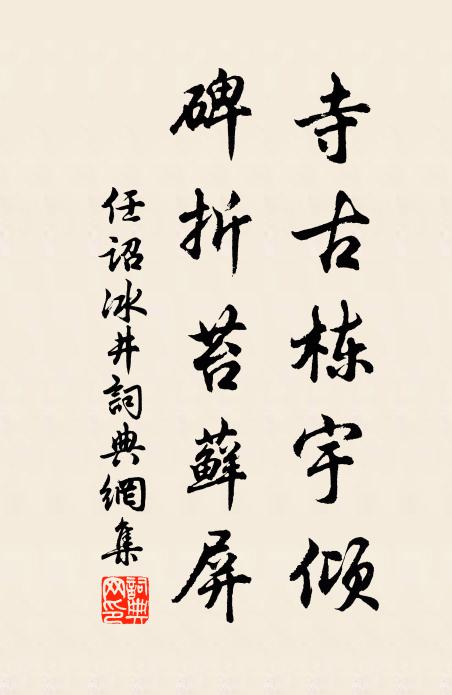 寺古栋宇倾
碑折苔藓屏
任诏冰井詞典網集
詞典网印